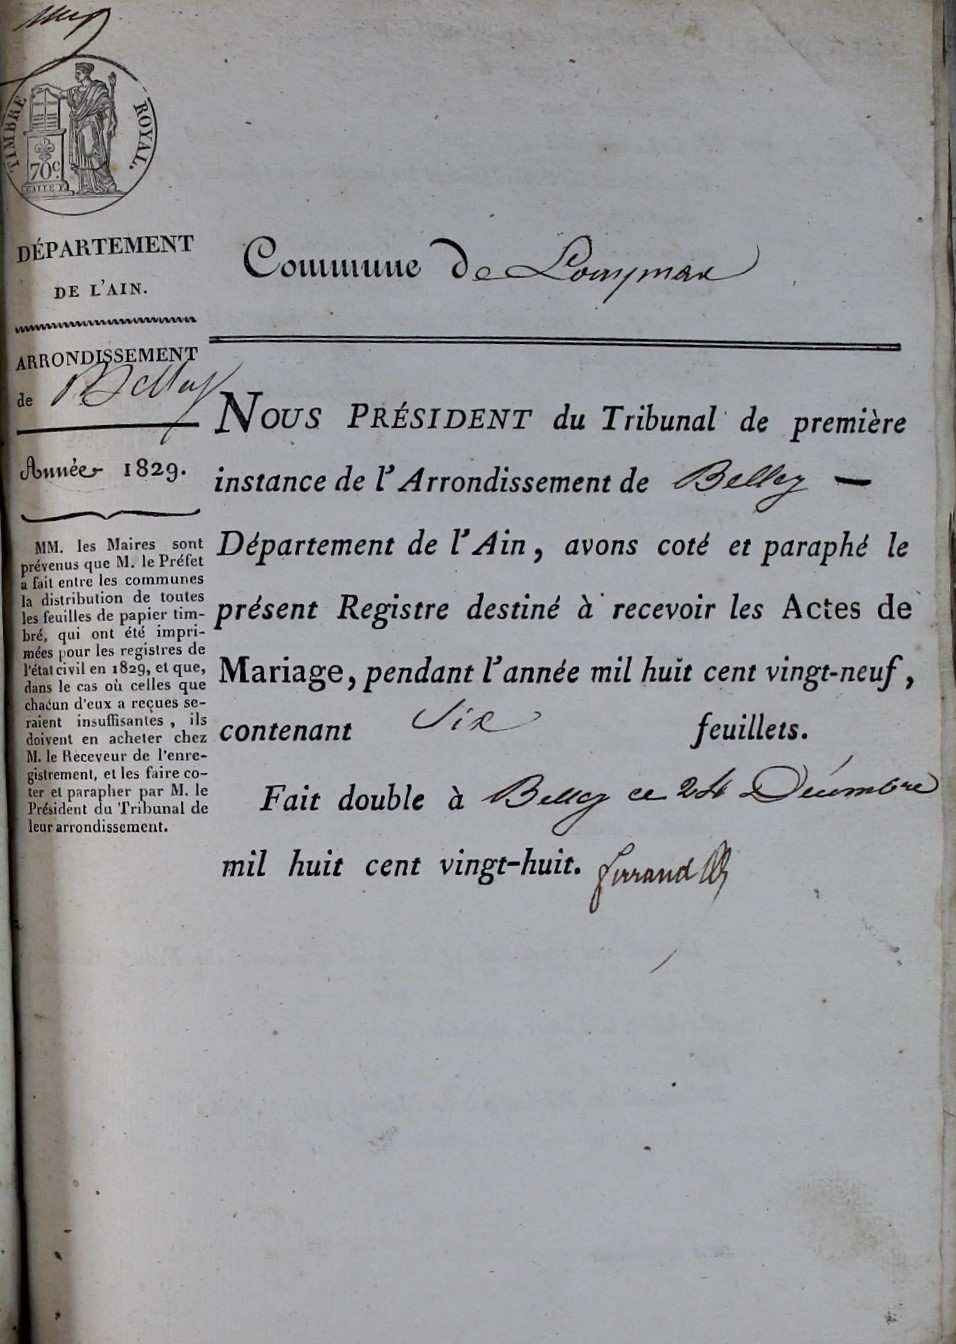 TIMBRE ROYAL.
70c.
DÉPARTEMENT
DE L'AIN.
ARRONDISSEMENT
de Belley
Année 1829.
MM. les Maires sont
prévenus que M. le Préfet
a fait entre les communes
la distribution de toutes
les feuilles de papier tim-
bré, qui ont été impri-
mées pour les registres de
l'état civil en 1829, et que,
dans le cas où celles que
chacun d'eux a reçues se-
raient insuffisantes, ils
doivent en acheter chez
M. le Receveur de l'enre-
gistrement, et les faire co-
ter et parapher par M. le
Président du Tribunal de
leur arrondissement.
Commune de
NOUS PRÉSIDENT du Tribunal de première
instance de l'Arrondissement de Belley —
Département de l'Ain, avons coté et paraphé le
présent Registre destiné à recevoir les Actes de
Mariage, pendant l'année mil huit cent vingt-neuf,
contenant Six feuillets.
Fait double à Belley ce 24 Décembre
mil huit cent vingt-huit.